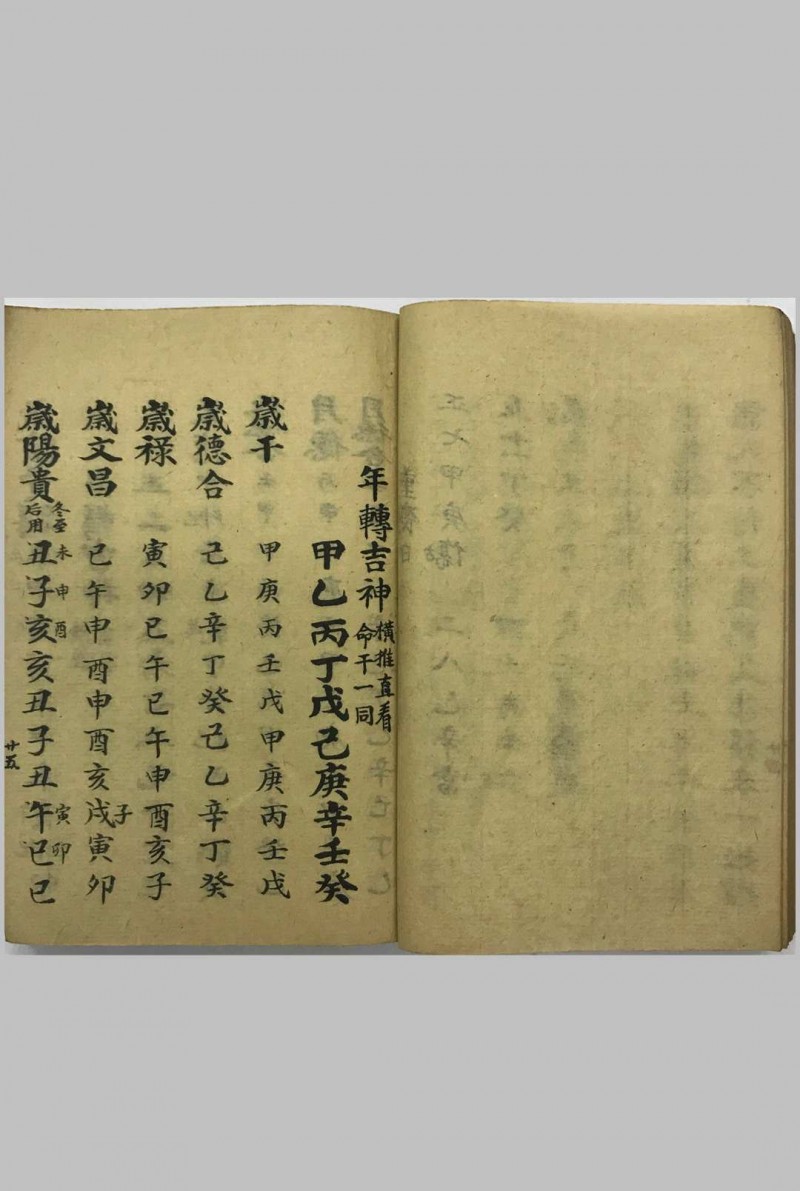 年轉吉神
橫推直看
命干一同
甲乙丙丁戊己庚辛壬癸
歲干 甲庚丙壬戊甲庚丙壬戊
歲德合 己乙辛丁癸己乙辛丁癸
歲祿 寅卯巳午巳午申酉亥子
子
歲文昌 巳午申酉申酉亥戌寅卯
冬至 未申酉 寅卯
后用
歲陽貴 丑子亥亥丑子丑午巳巳
廿五